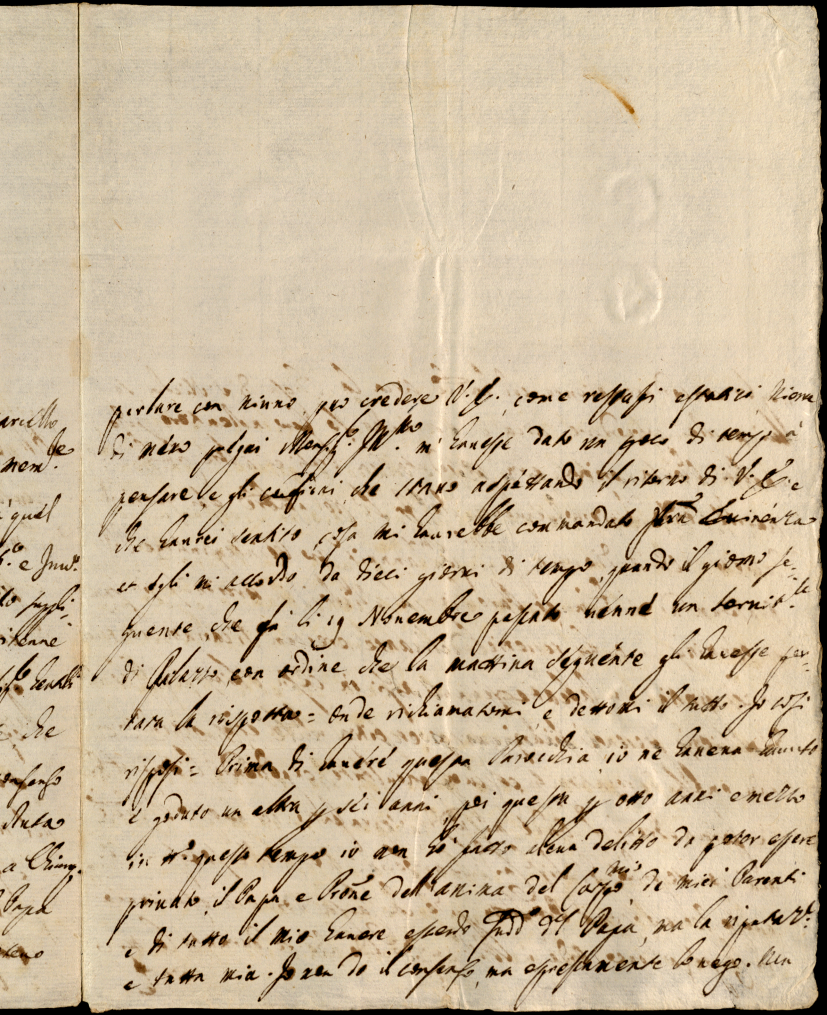 arcello
mem.te
e quel
lo suppli-
che
consenso
a Chiuy.
Papa
parlare con niuno, può credere V.E. come restassi estatico. Niente
di meno pregai Monsig.r Ill.mo m'hauesse dato un poco di tempo à
pensare, e gli che erano aspettando il ritorno di V.E. e
che haurei sentito, cosa mi haurebbe commandato Eminenza
et Egli mi accordò da dieci giorni di tempo, quando il giorno se-
guente, che fù li 19 Nouembre passato uenne un seruit.re
di Palazzo, con ordine che la mattina seguente gli hauesse por-
tata la risposta = onde richiamatomi, e dettomi il tutto. Io così
risposi = Prima di hauere questa Parocchia, io ne haueua hauuto
e goduto un altra p sei anni, poi questa p otto anni e mezzo
in tt.o questo tempo io non hò fatto alcun delitto da poter essere
priuato, il Papa e Prone dell'anima del Corpo mio de miei Parenti
e di tutto il mio hauere essendo Sudd.o del Papa, ma la riputaz.e
e tutta mia. Io non do il consenso, ma espressamente lo nego. Un